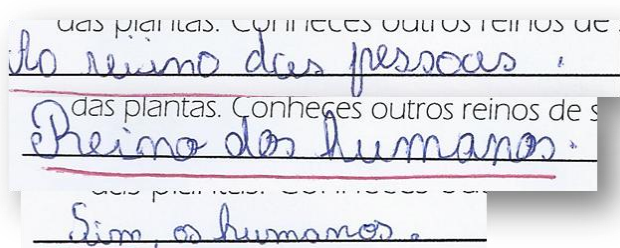 das plantas. Conheces outros reinos de
Ao reino das pessoas.
das plantas. Conheces outros reinos de s
Reino dos humanos.
Sim, os humanos.